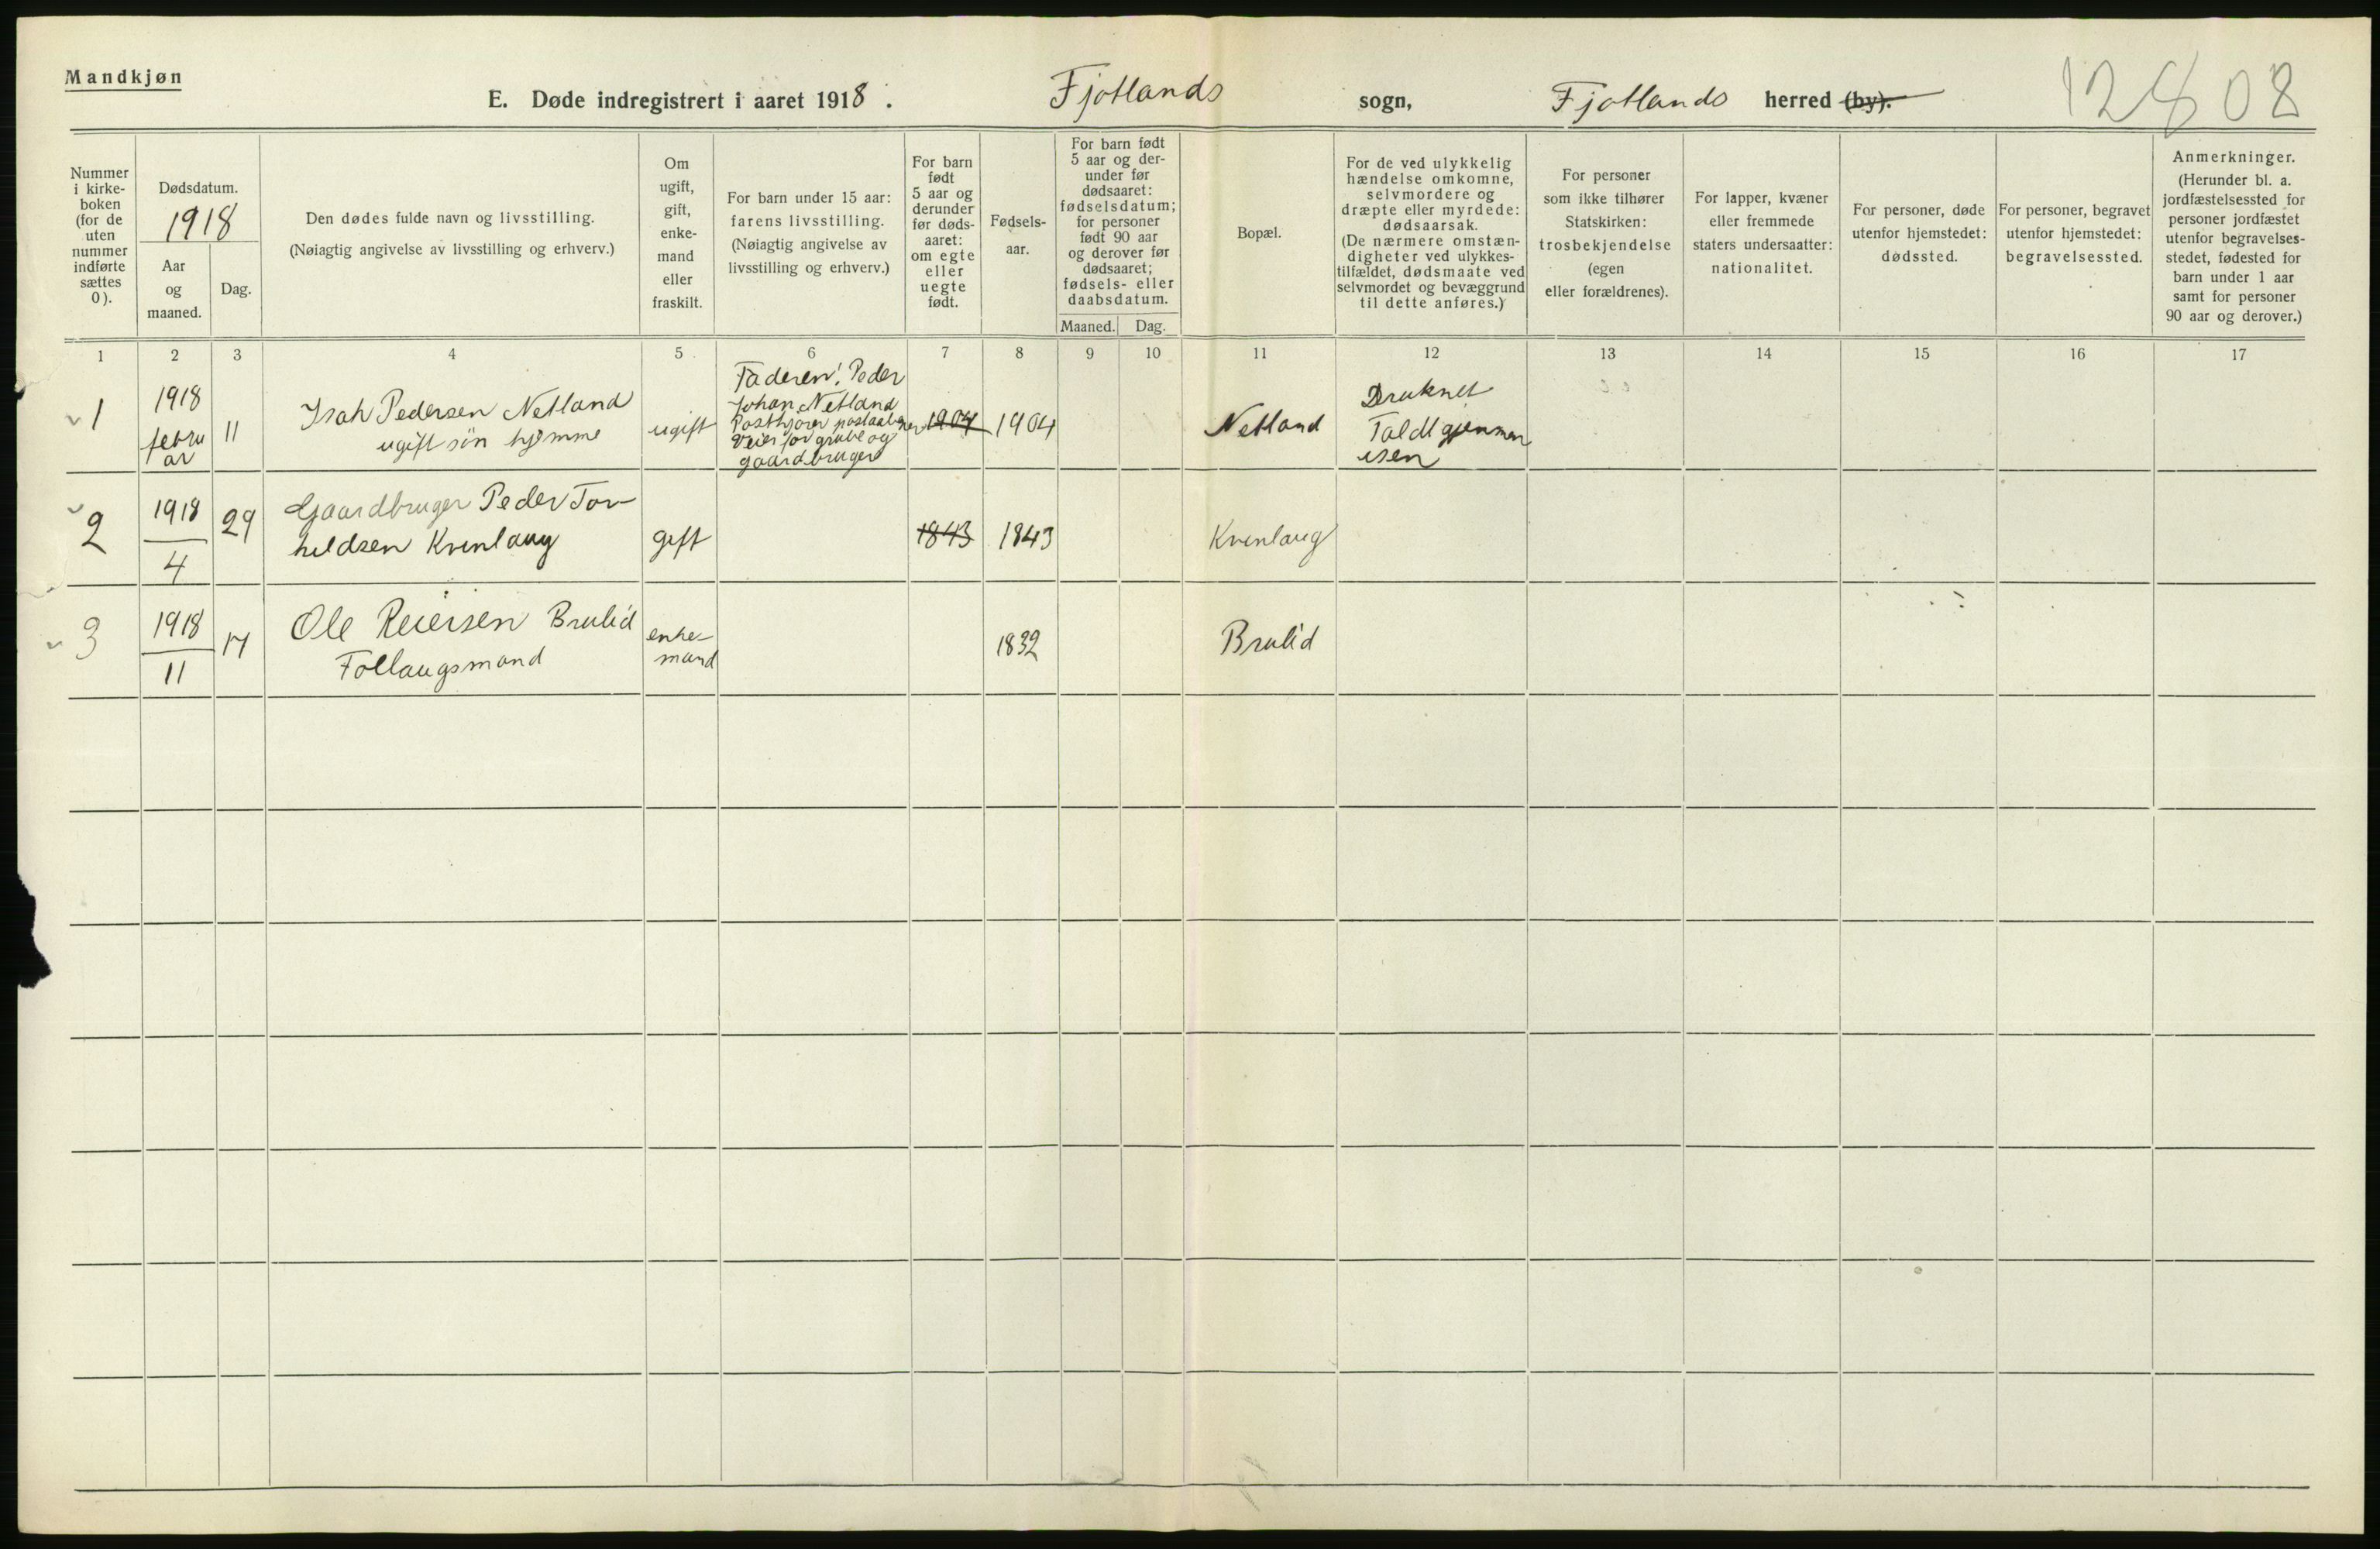 Mandkjøn
E. Døde indregistrert i aaret 1918. Fjotlands sogn, Fjotlands herred (by).
12808
Nummer
i kirke-
boken
(for de
uten
nummer
indførte
sættes
0).
Dødsdatum.
1918
Aar
og
maaned.
Dag.
Den dødes fulde navn og livsstilling.
(Nøiagtig angivelse av livsstilling og erhverv.)
Om
ugift,
gift,
enke-
mand
eller
fraskilt.
For barn under 15 aar:
farens livsstilling.
(Nøiagtig angivelse av
livsstilling og erhverv.)
For barn
født
5 aar og
derunder
før døds-
aaret:
om egte
eller
uegte
født.
Fødsels-
aar.
For barn født
5 aar og der-
under før
dødsaaret:
fødselsdatum;
for personer
født 90 aar
og derover før
dødsaaret;
fødsels- eller
daabsdatum.
Maaned. Dag.
Bopæl.
For de ved ulykkelig
hændelse omkomne,
selvmordere og
dræpte eller myrdede:
dødsaarsak.
(De nærmere omstæn-
digheter ved ulykkes-
tilfældet, dødsmaate ved
selvmordet og bevæggrund
til dette anføres.)
For personer
som ikke tilhører
Statskirken:
trosbekjendelse
(egen
eller forældrenes).
For lapper, kvæner
eller fremmede
staters undersaatter:
nationalitet.
For personer, døde
utenfor hjemstedet:
dødssted.
For personer, begravet
utenfor hjemstedet:
begravelsessted.
Anmerkninger.
(Herunder bl. a.
jordfæstelsessted for
personer jordfæstet
utenfor begravelses-
stedet, fødested for
barn under 1 aar
samt for personer
90 aar og derover.)
1 2 3 4 5 6 7 8 9 10 11 12 13 14 15 16 17
1
1918
febru
ar
11
Isak Pedersen Netland
ugift søn hjemme
ugift
Faderen: Peder
Johan Netland
gaardbruger
1904
1904
Netland
Druknet
Faldt gjennem
isen
2
1918
4
29
Gaardbruger Peder Tor-
kildsen Kvinlaug
gift
1843
1843
Kvinlaug
3
1918
11
17
Ole Reiersen Brulid
Follaugsmand
enke-
mand
1832
Brulid